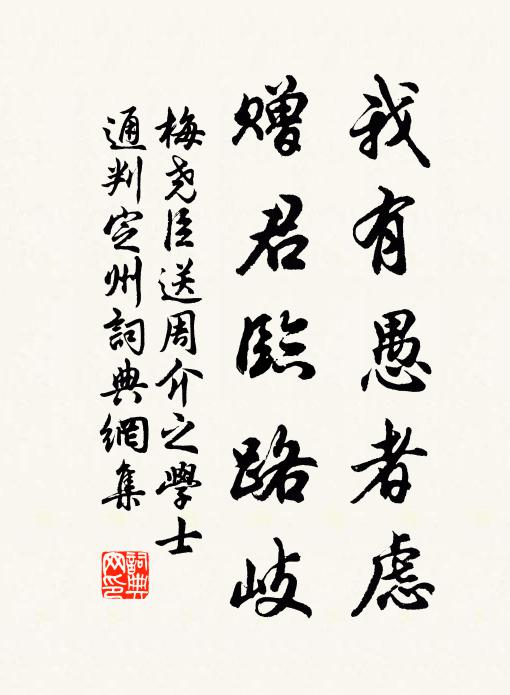 我有愚者慮
贈君臨路岐
梅堯臣送周介之學士
通判定州詞典網集
詞典網印